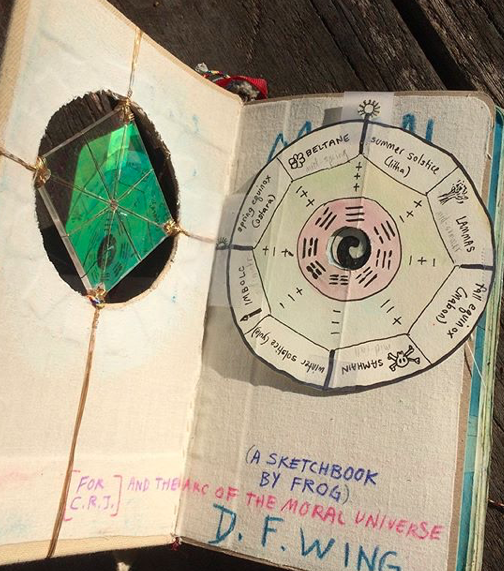 BELTANE
summer solstice
(litha)
LAMMAS
fall equinox
(Mabon)
SAMHAIN
winter solstice (yule)
IMBOLC
spring equinox
(ostara)
(A SKETCHBOOK
BY FROG)
[FOR
C.R.J.]
AND THE ARC OF THE MORAL UNIVERSE
D. F. WING